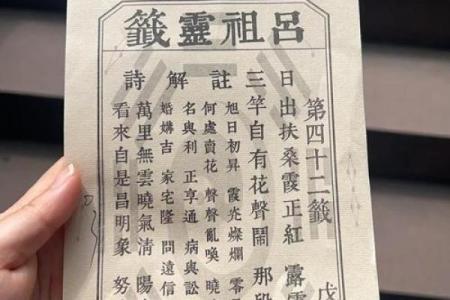 呂祖靈籤
註解詩
第四十二籤 戊
日出扶桑霞正紅 露
三竿自有花聲鬧 那
旭日初昇 霞光燦爛 零
何處賣花 聲聲亂喚 曉
名與利 正亨通 病與訟
婚媾吉 家宅隆 問遠信
萬里無雲曉氣清 陽
看來自是昌明象 努